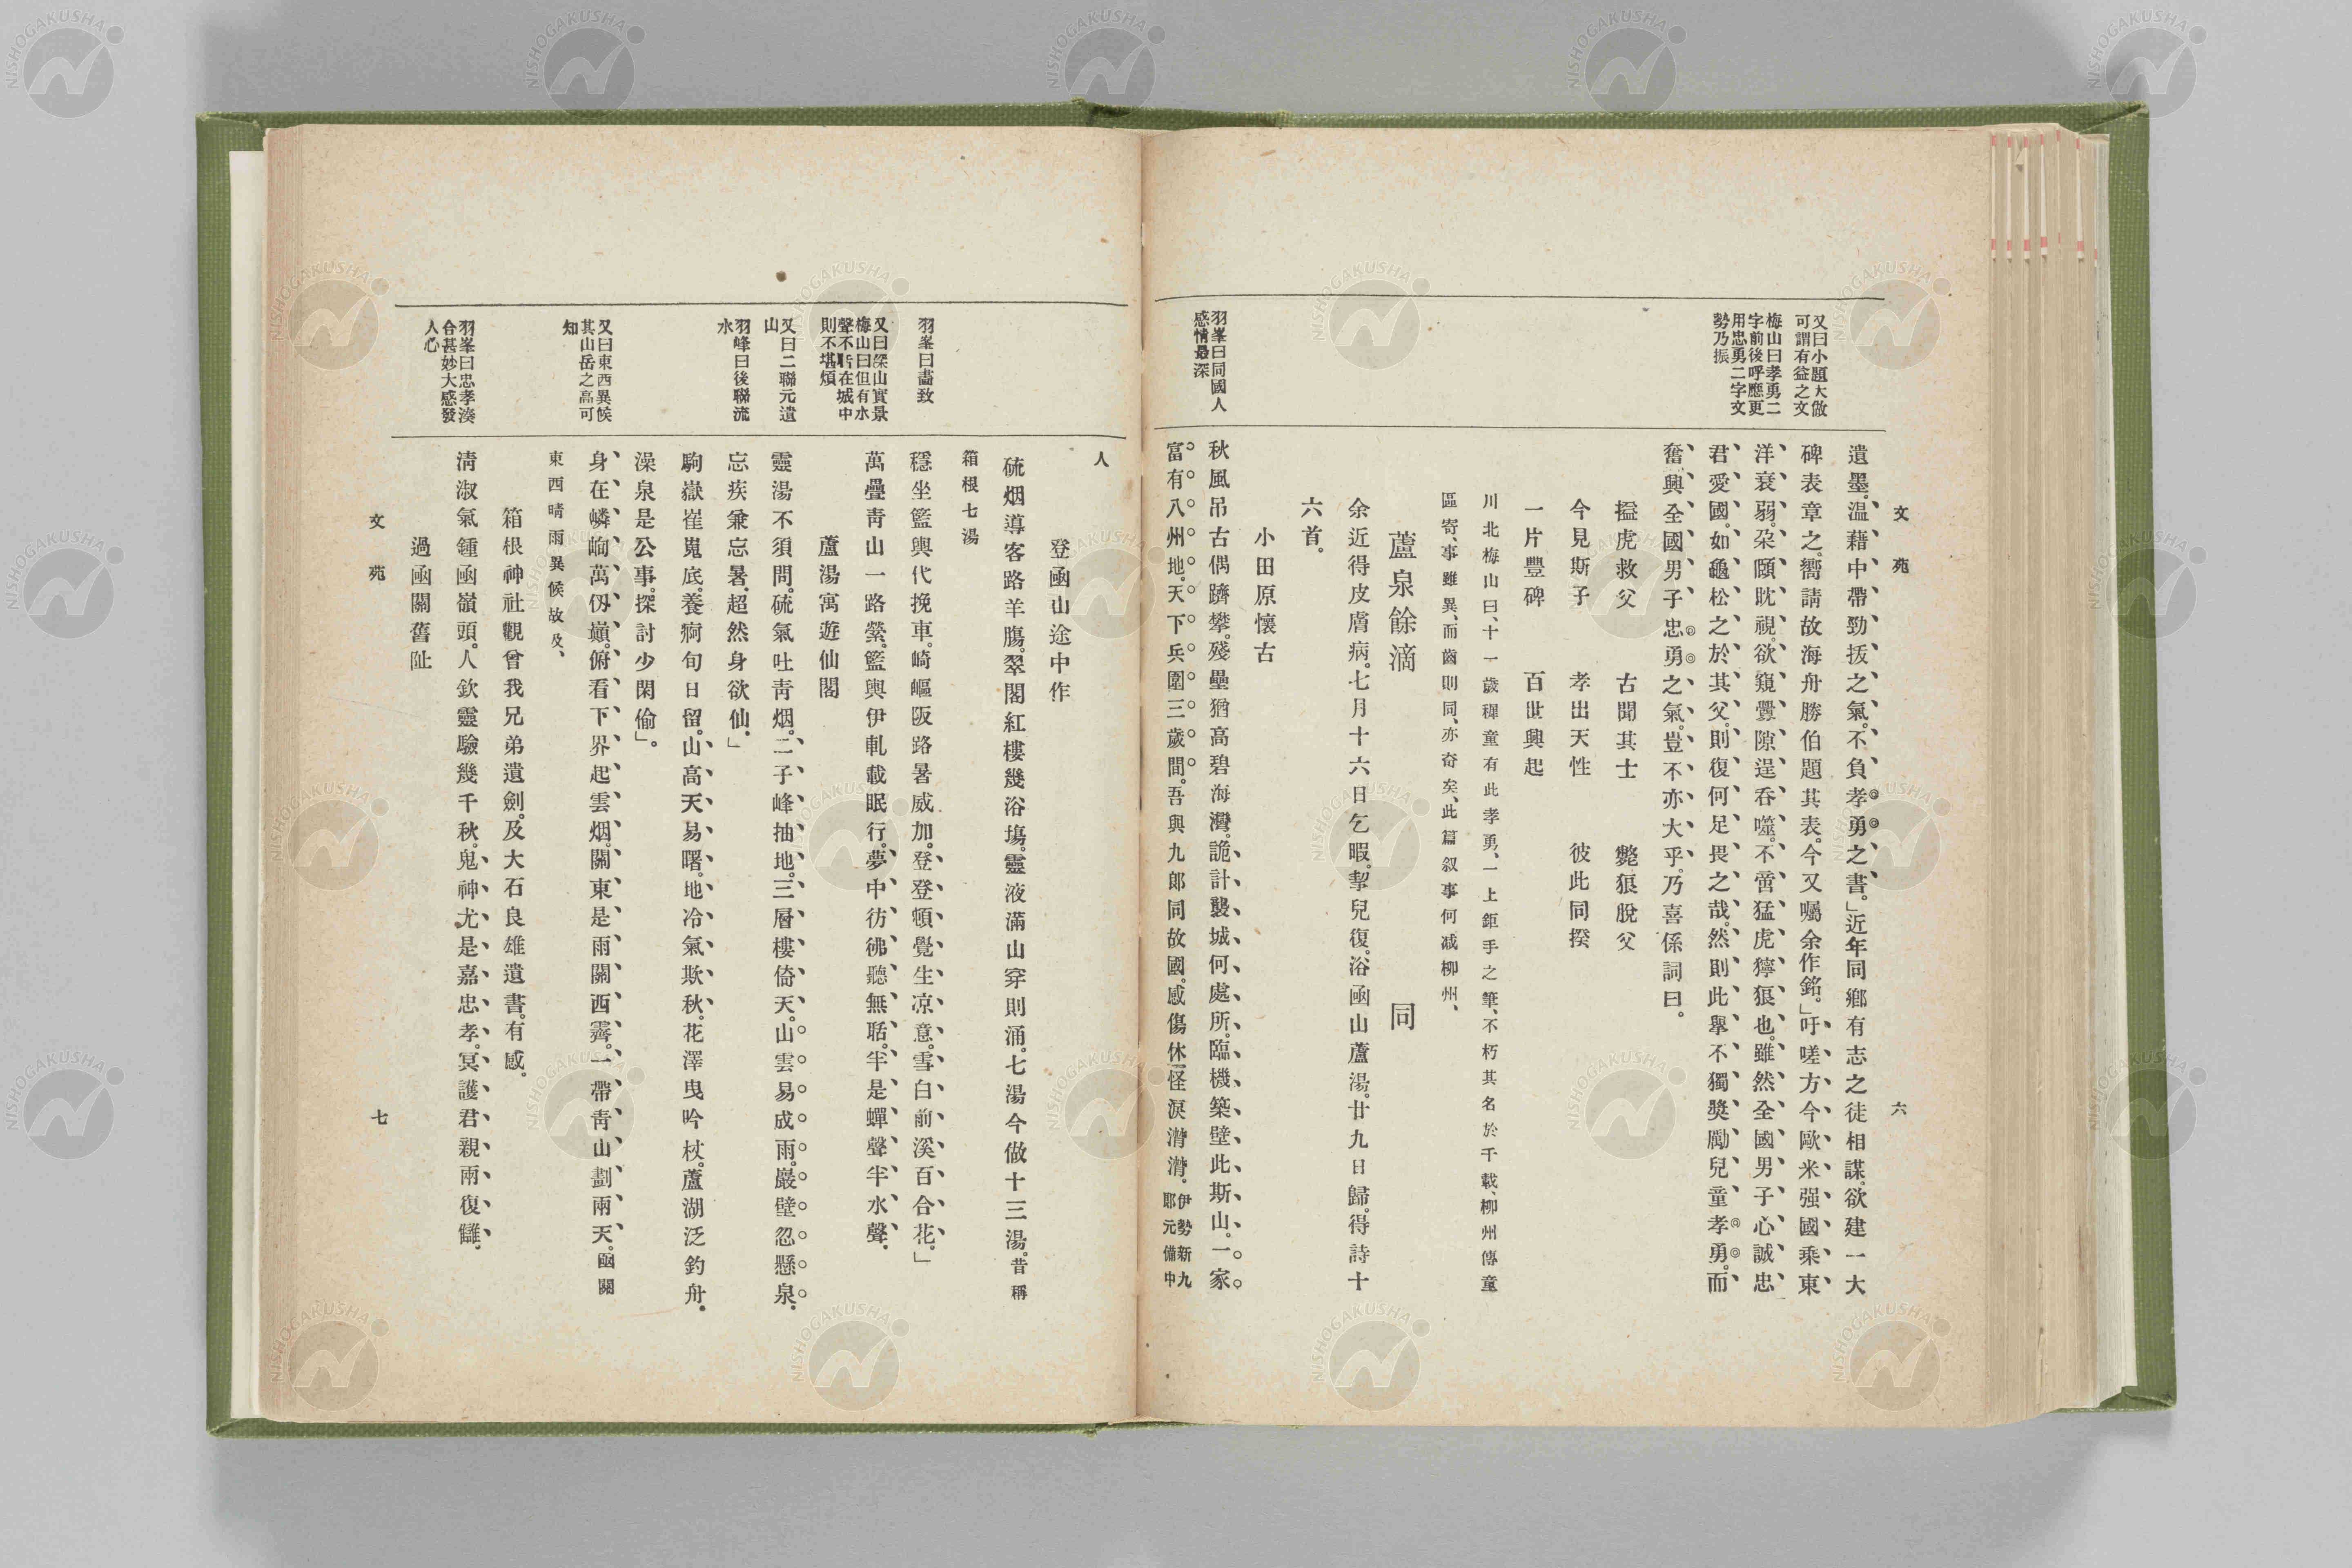 文苑
六
又曰小題大做
可謂有益之文
梅山曰孝勇二
字前後呼應更
用忠勇二字文
勢乃振
羽峯曰同國人
感情最深
遺墨。温藉中帶勁拔之氣。不負孝勇之書。」近年同鄉有志之徒相謀。欲建一大
碑表章之。嚮請故海舟勝伯題其表。今又囑余作銘。」吁嗟方今歐米强國乘東
洋衰弱。朶頤眈視。欲窺釁隙逞呑噬。不啻猛虎獰狼也。雖然全國男子心誠忠
君愛國。如龜松之於其父。則復何足畏之哉。然則此擧不獨奬勵兒童孝勇。而
奮興全國男子忠勇之氣。豈不亦大乎。乃喜係詞曰。
搤虎救父　古聞其士　斃狼脫父
今見斯子　孝出天性　彼此同揆
一片豐碑　百世興起
川北梅山曰、十一歲穉童有此孝勇、一上鉅手之筆、不朽其名於千載、柳州傳童
區寄、事雖異、而齒則同、亦奇矣、此篇叙事何减柳州、
蘆泉餘滴　同
余近得皮膚病。七月十六日乞暇。挈兒復。浴凾山蘆湯。廿九日歸。得詩十
六首。
小田原懷古
秋風吊古偶躋攀。殘壘猶高碧海灣。詭計襲城何處所。臨機築壁此斯山。一家
富有八州地。天下兵圍三歲間。吾與九郎同故國。感傷休怪淚潸潸。伊勢新九
耶元備中
人
羽峯曰盡致
又曰深山實景
梅山曰但有水
聲不聒在城中
則不堪煩
又曰二聯元遺
山
羽峰曰後聯流
水
又曰東西異候
其山岳之高可
知
羽峯曰忠孝湊
合甚妙大感發
人心
登凾山途中作
硫烟導客路羊膓。翠閣紅樓幾浴塲。靈液滿山穿則涌。七湯今做十三湯。昔稱
箱根七湯
穩坐籃輿代挽車。崎嶇阪路暑威加。登登頓覺生凉意。雪白前溪百合花。」
萬疊靑山一路縈。籃輿伊軋載眠行。夢中彷彿聽無聒。半是蟬聲半水聲。
蘆湯寓遊仙閣
靈湯不須問。硫氣吐靑烟。二子峰抽地。三層樓倚天。山雲易成雨。巖壁忽懸泉。
忘疾兼忘暑。超然身欲仙。」
駒嶽崔嵬底。養痾旬日留。山高天易曙。地冷氣欺秋。花澤曳吟杖。蘆湖泛釣舟。
澡泉是公事。探討少閑偷」。
身在嶙峋萬仭巓。俯看下界起雲烟。關東是雨關西霽。一帶靑山劃兩天。凾關
東西晴雨異候故及、
箱根神社觀曾我兄弟遺劍。及大石良雄遺書。有感。
淸淑氣鍾凾嶺頭。人欽靈驗幾千秋。鬼神尤是嘉忠孝。冥護君親兩復讎。
過凾關舊趾
文苑
七